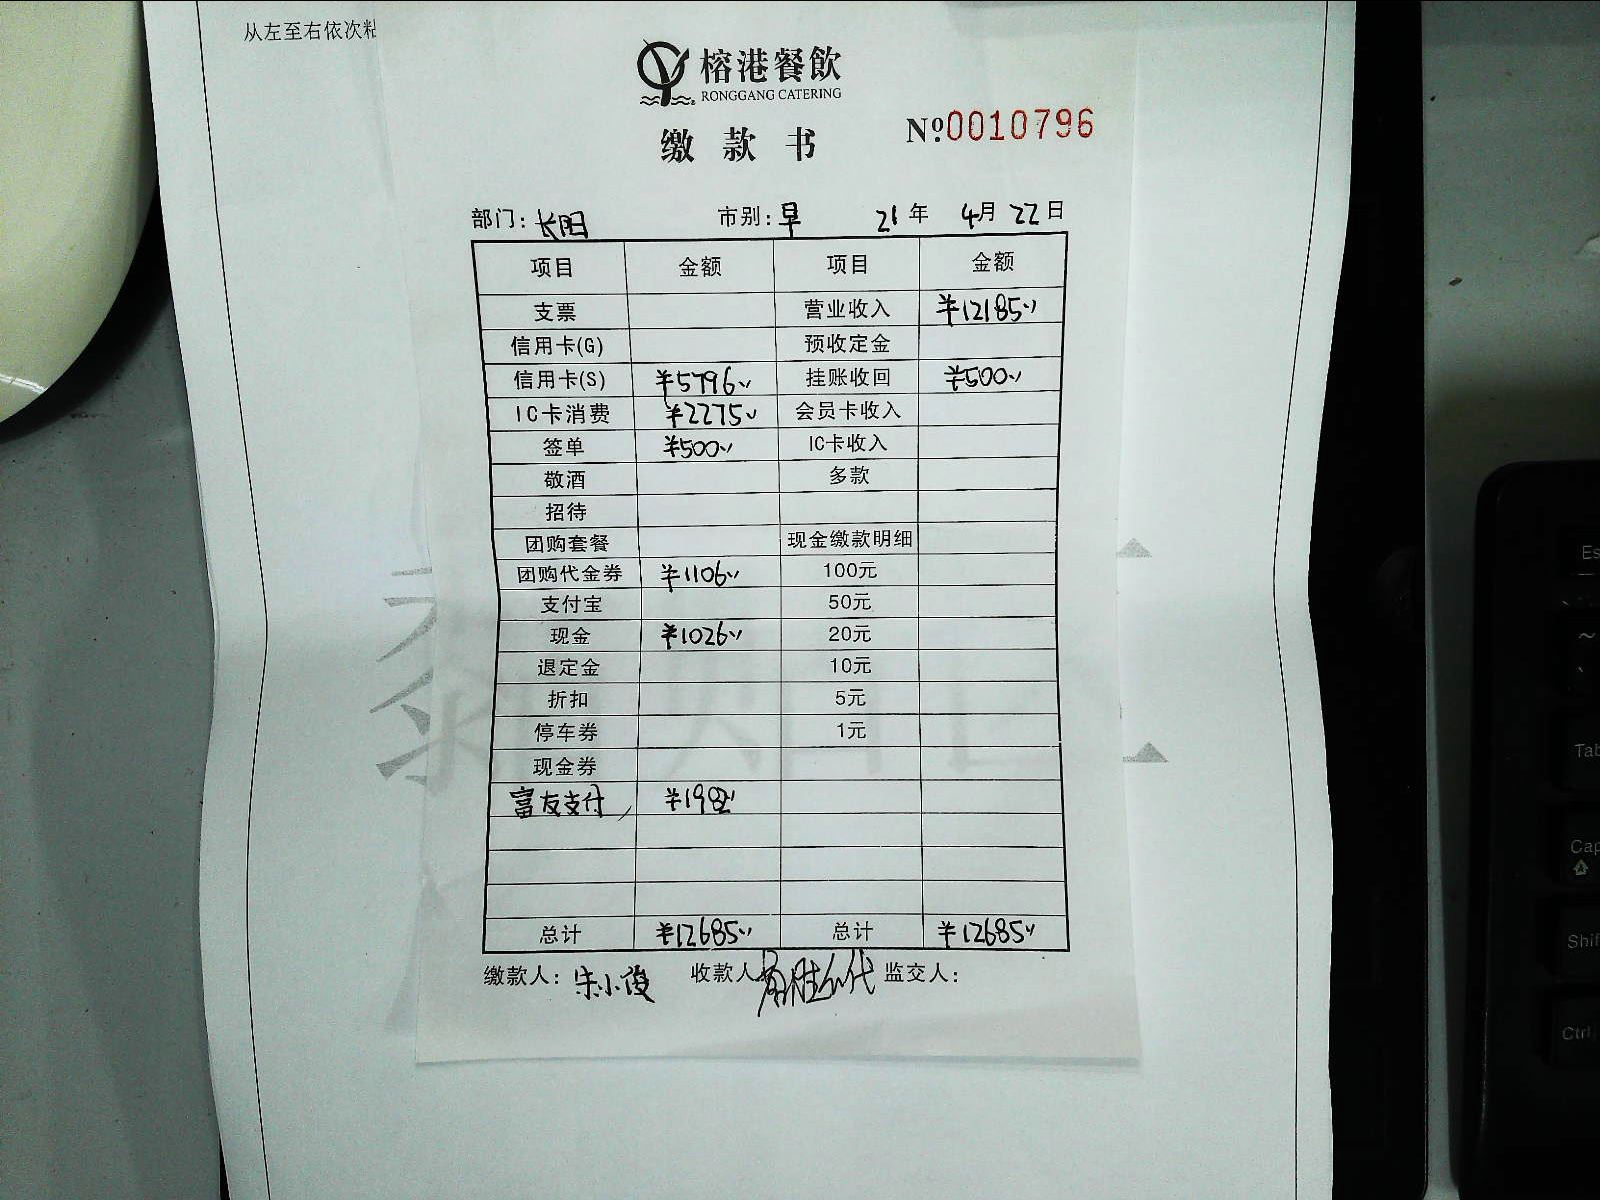 从左至右依次粘
榕港餐飲
RONGGANG CATERING
缴款书
Nº0010796
部门：长阳 市别：早 21年 4月 22日
项目 金额 项目 金额
支票 营业收入 ¥12185
信用卡(G) 预收定金
信用卡(S) ¥5796 挂账收回 ¥500
IC卡消费 ¥2275 会员卡收入
签单 ¥500 IC卡收入
敬酒 多款
招待
团购套餐 现金缴款明细
团购代金券 ¥1106 100元
支付宝 50元
现金 ¥1026 20元
退定金 10元
折扣 5元
停车券 1元
现金券
富友支付 ¥1982
总计 ¥12685 总计 ¥12685
缴款人：朱小俊 收款人 监交人：
Es
Tab
Cap
Shif
Ctrl